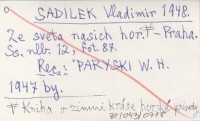 SADILEK Vladimir 1948.
Ze sveta nasich hor. ⌿ - Praha.
Ss. nlb. 12, fot. 87.
Rec.: PARYSKI W. H.
1947 by.
⌿ Kniha o zimni kráse horské přírody
B1/043/0718